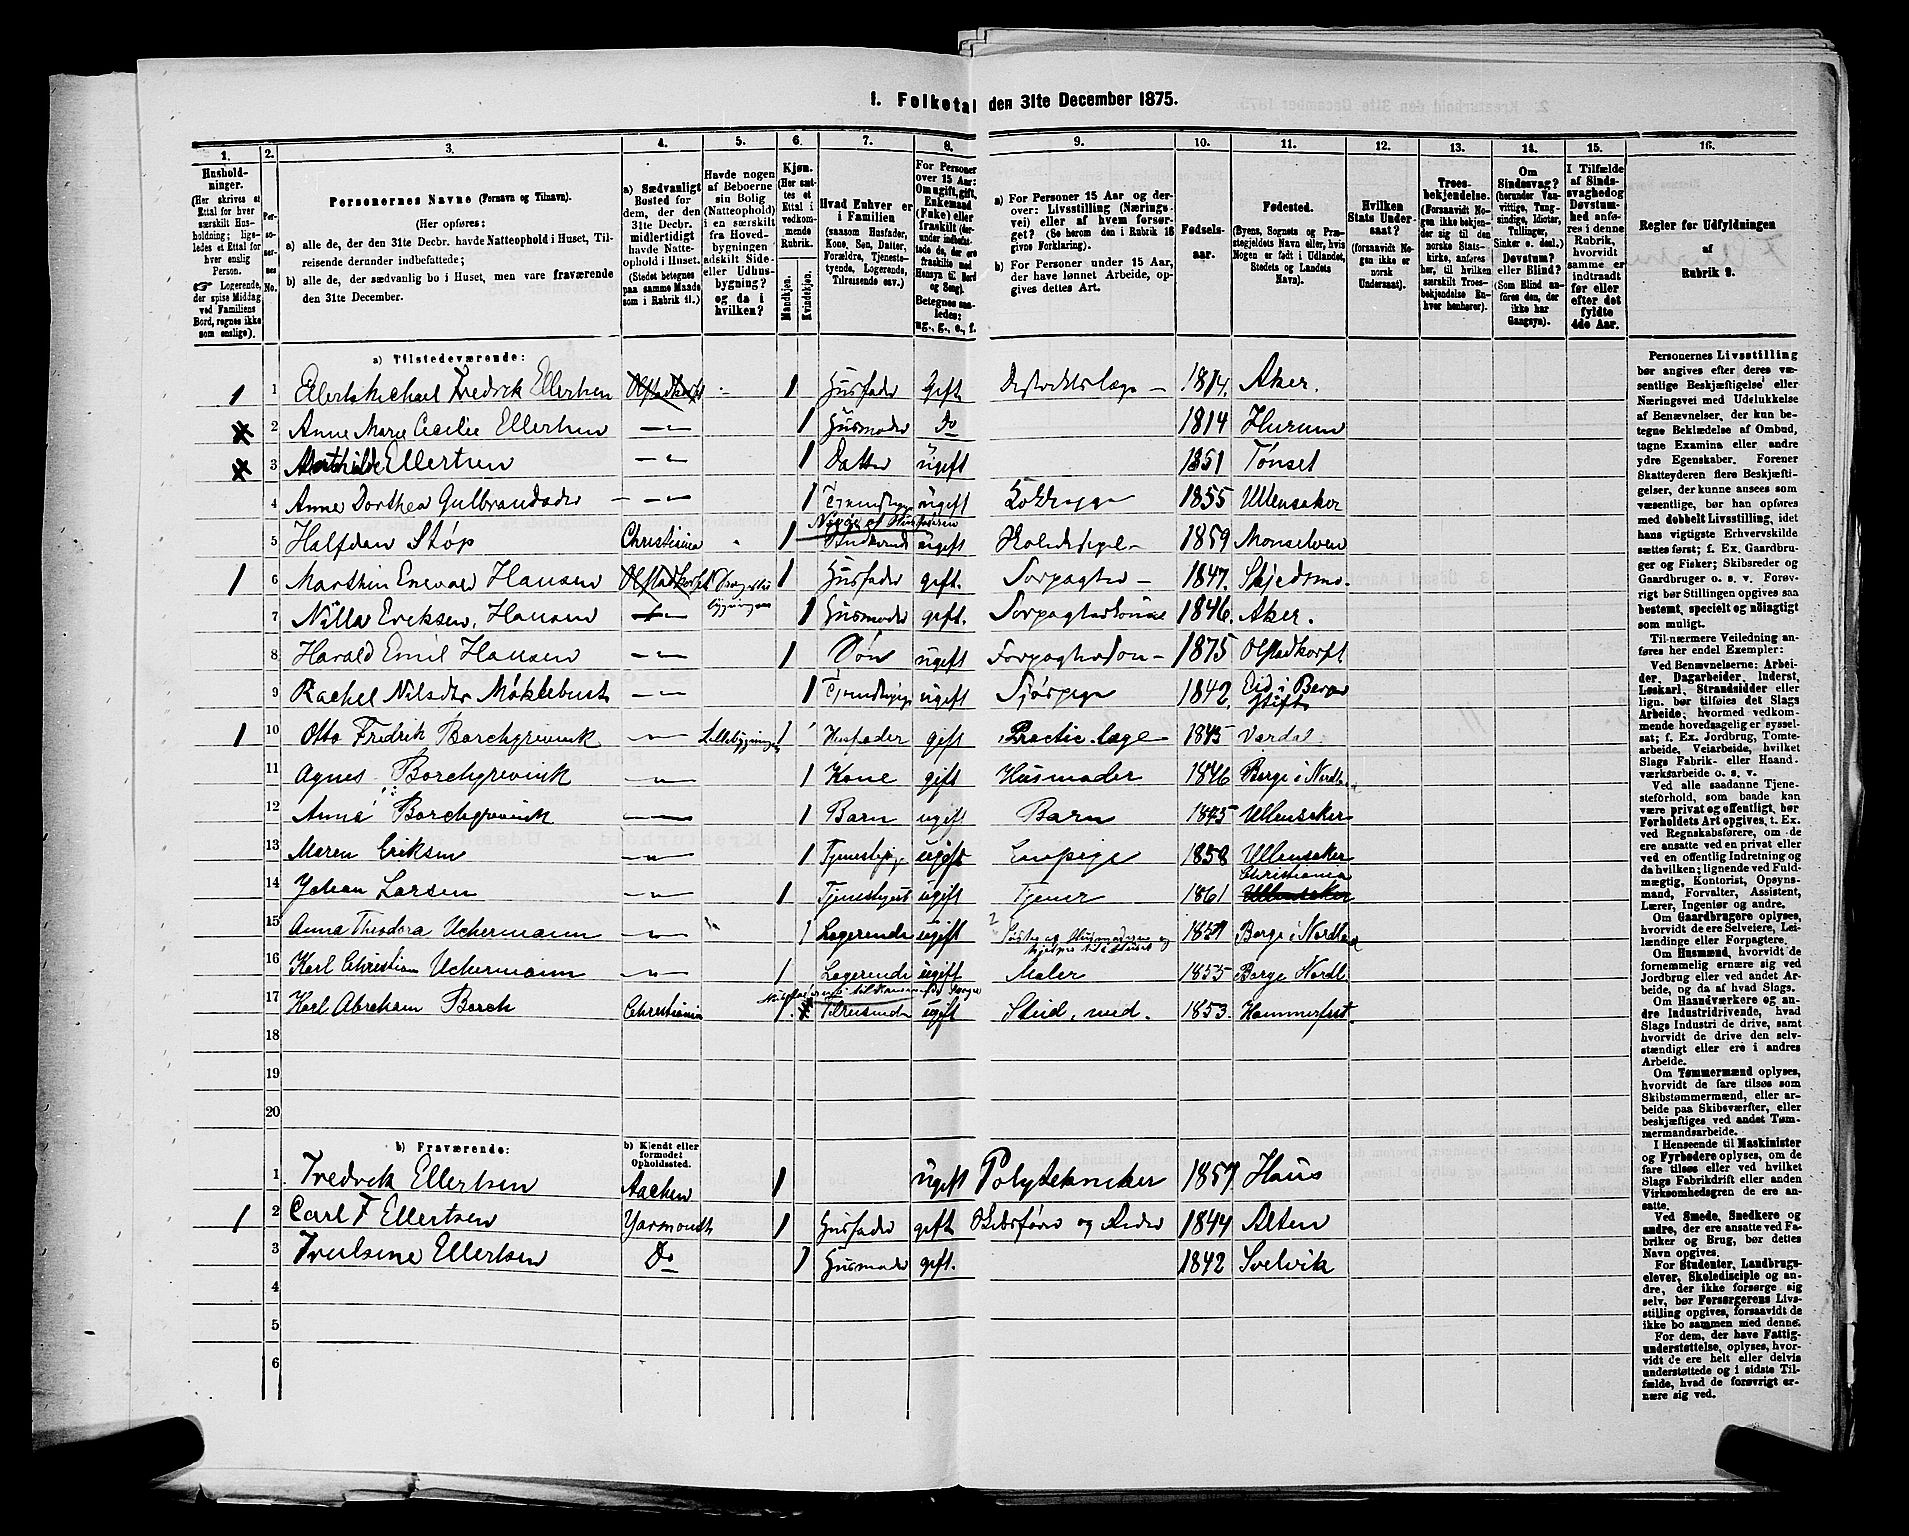 1. Folketal den 31te December 1875.
1. 2. 3. 4. 5. 6. 7. 8. 9. 10. 11. 12. 13. 14. 15. 16.
Husholdninger.
(Her skrives et Ettal for hver særskilt Husholdning; ligeledes et Ettal for hver enslig Person.
☞ Logerende, der spise Middag ved Familiens Bord, regnes ikke som enslige).
Personernes No.
Personernes Navne (Fornavn og Tilnavn).
(Her opføres:
a) alle de, der den 31te Decbr. havde Natteophold i Huset, Tilreisende derunder indbefattede;
b) alle de, der sædvanlig bo i Huset, men vare fraværende den 31te December.
a) Sædvanligt Bosted for dem, der den 31te Decbr. midlertidigt havde Natteophold i Huset.
(Stedet betegnes paa samme Maade som i Rubrik 11.)
Havde nogen af Beboerne sin Bolig (Natteophold) i en særskilt fra Hovedbygningen adskilt Side- eller Udhusbygning? og da i hvilken?
Kjøn.
(Her sættes et Ettal i vedkommende Rubrik.
Mandkjøn. Kvindekjøn.
Hvad Enhver er i Familien
(saasom Husfader, Kone, Søn, Datter, Forældre, Tjenestetyende, Logerende, Tilreisende osv.)
For Personer over 15 Aar: Om ugift, gift, Enkemand (Enke) eller fraskilt
Betegnes saaledes: ug., g., e., f.
a) For Personer 15 Aar og derover: Livsstilling (Næringsvei) eller af hvem forsørget? (Se herom den i Rubrik 16 givne Forklaring).
b) For Personer under 15 Aar, der have lønnet Arbeide, opgives dettes Art.
Fødselsaar.
Fødested.
(Byens, Sognets og Præstegjeldets Navn eller, hvis Nogen er født i Udlandet, Stedets og Landets Navn).
Hvilken Stats Undersaat?
(forsaavidt Nogen ikke er norsk Undersaat).
Troesbekjendelse.
(Forsaavidt Nogen ikke bekjender sig til den norske Statskirke, anføres her, til hvilken særskilt Troesbekjendelse Enhver henhører).
Om Sindssvag? (herunder Vanvittige, Tungsindige, Idioter, Tullinger, Sinker o. desl.) Døvstum? eller Blind?
(Som Blind anføres den, der ikke har Gangsyn).
I Tilfælde af Sindssvaghed og Døvstumhed anføres i denne Rubrik, hvorvidt samme er indtraadt før eller efter det fyldte 4de Aar.
Regler for Udfyldningen af Rubrik 9.
a) Tilstedeværende:
1 1 Eilert Michael Fredrik Ellertsen Olstadkorst - 1 Husfader Gift Destriktslæge - 1814. Aker.
2 Anne Marie Cecilie Ellertsen -"- 1 Husmoder Do 1814 Hurum
3 Mathilde Ellertsen -"- 1 Datter ugift 1851 Tønset
4 Anne Dorthea Gulbrandsdr -"- 1 ugift Kokkepige 1855 Ullensaker
5 Halfdan Støp Christiania " 1 Nevø af Husfaderen ugift 1859 Monselven
1 6 Marthin Enevald Hansen 1 Husfader gift. Forpagter - 1847. Skjedsmo.
7 Nilla Eriksen, Hansen 1 Husmoder gift. Forpagterkone 1846. Aker.
8 Harald Emil Hansen -"- 1 Søn ugift Forpagterson - 1875
9 Rachel Nilsdtr Møklebust -"- 1 ugift 1842 Eid i Bergen Stift
1 10 Otto Fredrik Borchgrevink -"- Sidebygningen 1 Husfader gift Practic. læge 1845 Vardal.
11 Agnes Borchgrevink -"- 1 Kone gift Husmoder 1846 Borge i Nordl.
12 Anna Borchgrevink -"- 1 Barn ugift Barn Ullensaker
13 Maren Eriksen -"- 1 Tjenestepige ugift 1858 Ullensaker
14 Johan Larsen -"- 1 ugift Tjener 1861 Christiania
15 Anna Theodora Uchermann -"- 1 Logerende ugift Søster og Husmoderens 1851 Borge i Nordland
16 Karl Christian Uchermann -"- 1 Logerende ugift Maler 1855 Borge Nordl
17 Karl Abraham Borch Christiania 1 Tilreisende ugift Stud. med. 1853. Hammerfest.
18
19
20
b) Fraværende: b) Kjendt eller formodet Opholdssted.
1 Fredrik Ellertsen Aachen 1 ugift Polytekniker 1857 Haus
1 2 Carl F Ellertsen Yarmouth 1 Husfader gift Skibsfører og Reder 1844 Alten
3 Ellertsen Do 1 Husmoder gift. 1842 Svelvik
4
5
6
Personernes Livsstilling bør angives efter deres væsentlige Beskjæftigelse eller Næringsvei med Udelukkelse af Benævnelser, der kun betegne Beklædelse af Ombud, tagne Examina eller andre ydre Egenskaber. Forener Skatteyderen flere Beskjæftigelser, der kunne ansees som væsentlige, bør han opføres med dobbelt Livsstilling, idet hans vigtigste Erhvervskilde sættes først; f. Ex. Gaardbruger og Fisker; Skibsreder og Gaardbruger o. s. v. Forøvrigt bør Stillingen opgives saa bestemt, specielt og nøiagtigt som muligt.
Til nærmere Veiledning anføres her endel Exempler:
Ved Benævnelserne: Arbeider, Dagarbeider, Inderst, Løskarl, Strandsidder eller lign. bør tilføies det Slags Arbeide, hvormed vedkommende hovedsagelig er sysselsat; f. Ex. Jordbrug, Tomtearbeide, Veiarbeide, hvilket Slags Fabrik- eller Haandværksarbeide o. s. v.
Ved alle saadanne Tjenesteforhold, som baade kan være privat og offentligt, bør Forholdets Art opgives, t. Ex. ved Regnskabsførere, om de ere ansatte ved en privat eller ved en offentlig Indretning og da hvilken; lignende ved Fuldmægtig, Kontorist, Opsynsmand, Forvalter, Assistent, Lærer, Ingeniør og andre.
Om Gaardbrugere oplyses, hvorvidt de ere Selveiere, Leilændinge eller Forpagtere.
Om Husmænd, hvorvidt de fornemmelig ernære sig ved Jordbrug eller ved andet Arbeide, og da af hvad Slags.
Om Haandværkere og andre Industridrivende, hvad Slags Industri de drive, samt hvorvidt de drive den selvstændigt eller ere i andres Arbeide.
Om Tømmermænd oplyses, hvorvidt de fare tilsøs som Skibstømmermænd, eller arbeide paa Skibsværfter, eller beskjæftiges ved andet Tømmermandsarbeide.
I Henseende til Maskinister og Fyrbødere oplyses, om de fare tilsøs eller ved hvilket Slags Fabrikdrift eller anden Virksomhedsgren de ere ansatte.
Ved Smede, Snedkere og andre, der ere ansatte ved Fabriker og Brug, bør dettes Navn opgives.
For Studenter, Landbrugselever, Skoledisciple og andre, der ikke forsørge sig selv, bør Forsørgerens Livsstilling opgives, forsaavidt de ikke bo sammen med denne.
For dem, der have Fattigunderstøttelse, oplyses, hvorvidt de ere helt eller delvis understøttede og i sidste Tilfælde, hvad de forøvrigt ernære sig ved.